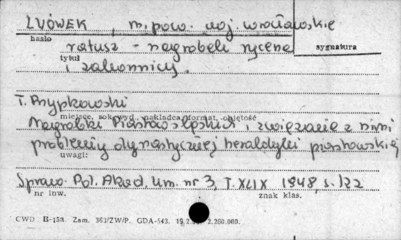 LWÓWEK, m. pow. woj. wrocławskie
hasło
ratusz - nagrobek rycerza
tytuł
sygnatura
i zakonnicy.
T. Przypkowski
miejsce, rok wyd., nakładca, format, objętość
Nagrobki Piastów śląskich i związane z nimi
problemy dynastycznej heraldyki piastowskiej
uwagi:
Spraw. Pol. Akad. Um. nr 3, T. XLIX 1948, s. 122
nr inw.
znak klas.
CWD B-159. Zam. 393/ZW/P. GDA-543. 2.250.000.